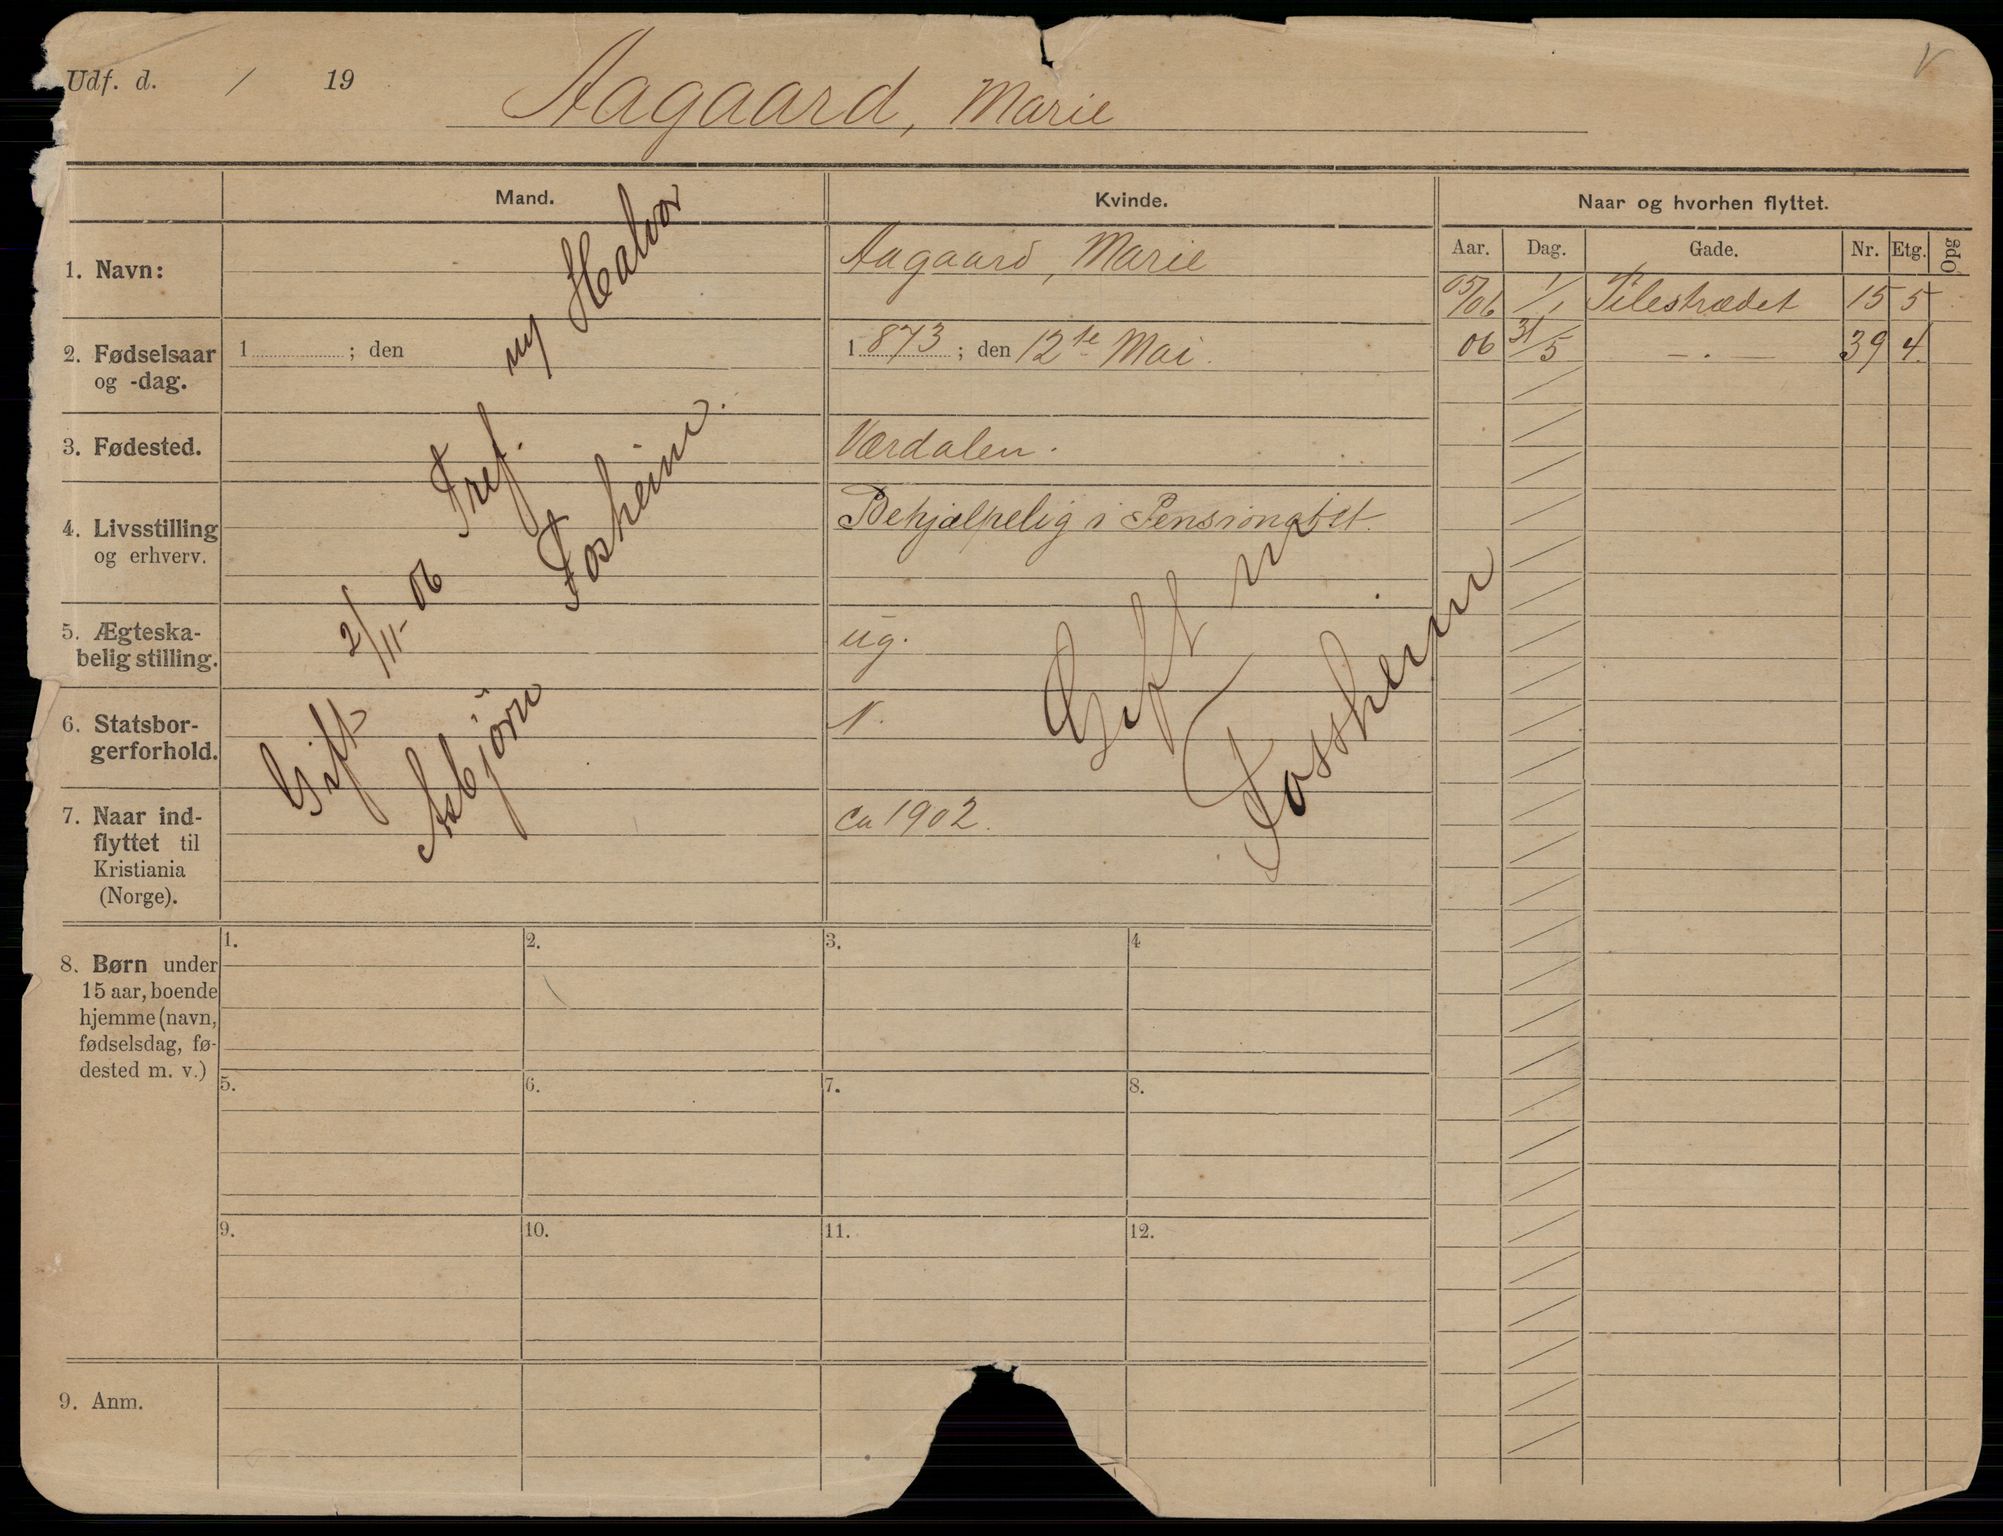 Udf. d. / 19
Aagaard, Marie
Mand.
Kvinde.
Naar og hvorhen flyttet.
Aar. Dag. Gade. Nr. Etg. Opg
05/06 1/1 Pilestrædet 15 5
06 31/5 — . — 39 4
1. Navn:
Aagaard, Marie
2. Fødselsaar
og -dag.
1 ; den
1 873 ; den 12te Mai.
3. Fødested.
Værdalen.
4. Livsstilling
og erhverv.
Behjælpelig i Pensionatet.
5. Ægteska-
belig stilling.
ug.
6. Statsbor-
gerforhold.
N.
7. Naar ind-
flyttet til
Kristiania
(Norge).
ca 1902.
Gift 2/11-06 Fref. m/ Halvor
Asbjörn Fosheim.
Gift m
Fossheim
8. Børn under
15 aar, boende
hjemme (navn,
fødselsdag, fø-
dested m. v.)
1. 2. 3. 4
5. 6. 7. 8.
9. 10. 11. 12.
9. Anm.